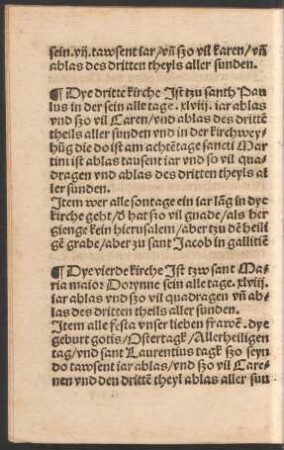 sein .vij. tawsent iar/ vn̄ szo vil karen/ vn̄
ablas des dritten theyls aller sunden.
¶ Dye dritte kirche Jst tzu santh Pau
lus in der sein alle tage .xlviij. iar ablas
vnd szo vil Caren/ vnd ablas des drittē
theils aller sunden vnd in der kirchwey-
hūg die do ist am achtē tage sancti Mar
tini ist ablas tausent iar vnd so vil qua-
dragen vnd ablas des dritten theyls al
ler sunden.
Jtem wer alle sontage ein iar lāg in dye
kirche geht/ d̄ hat szo vil gnade/ als her
gienge kein hierusalem/ aber tzu dē heili
gē grabe/ aber zu sant Jacob in gallitiē
¶ Dye vierde kirche Jst tzw sant Ma-
ria maior Dorynne sein alle tage .xlviij.
iar ablas vnd szo vil quadragen vn̄ ab-
las des dritten theils aller sunden.
Jtem alle festa vnser lieben frawē. dye
geburt gotis/ Ostertagk/ Allerheiligen
tag/ vnd sant Laurentius tagk szo seyn
do tawsent iar ablas/ vnd szo vil Care-
nen vnd den drittē theyl ablas aller sun